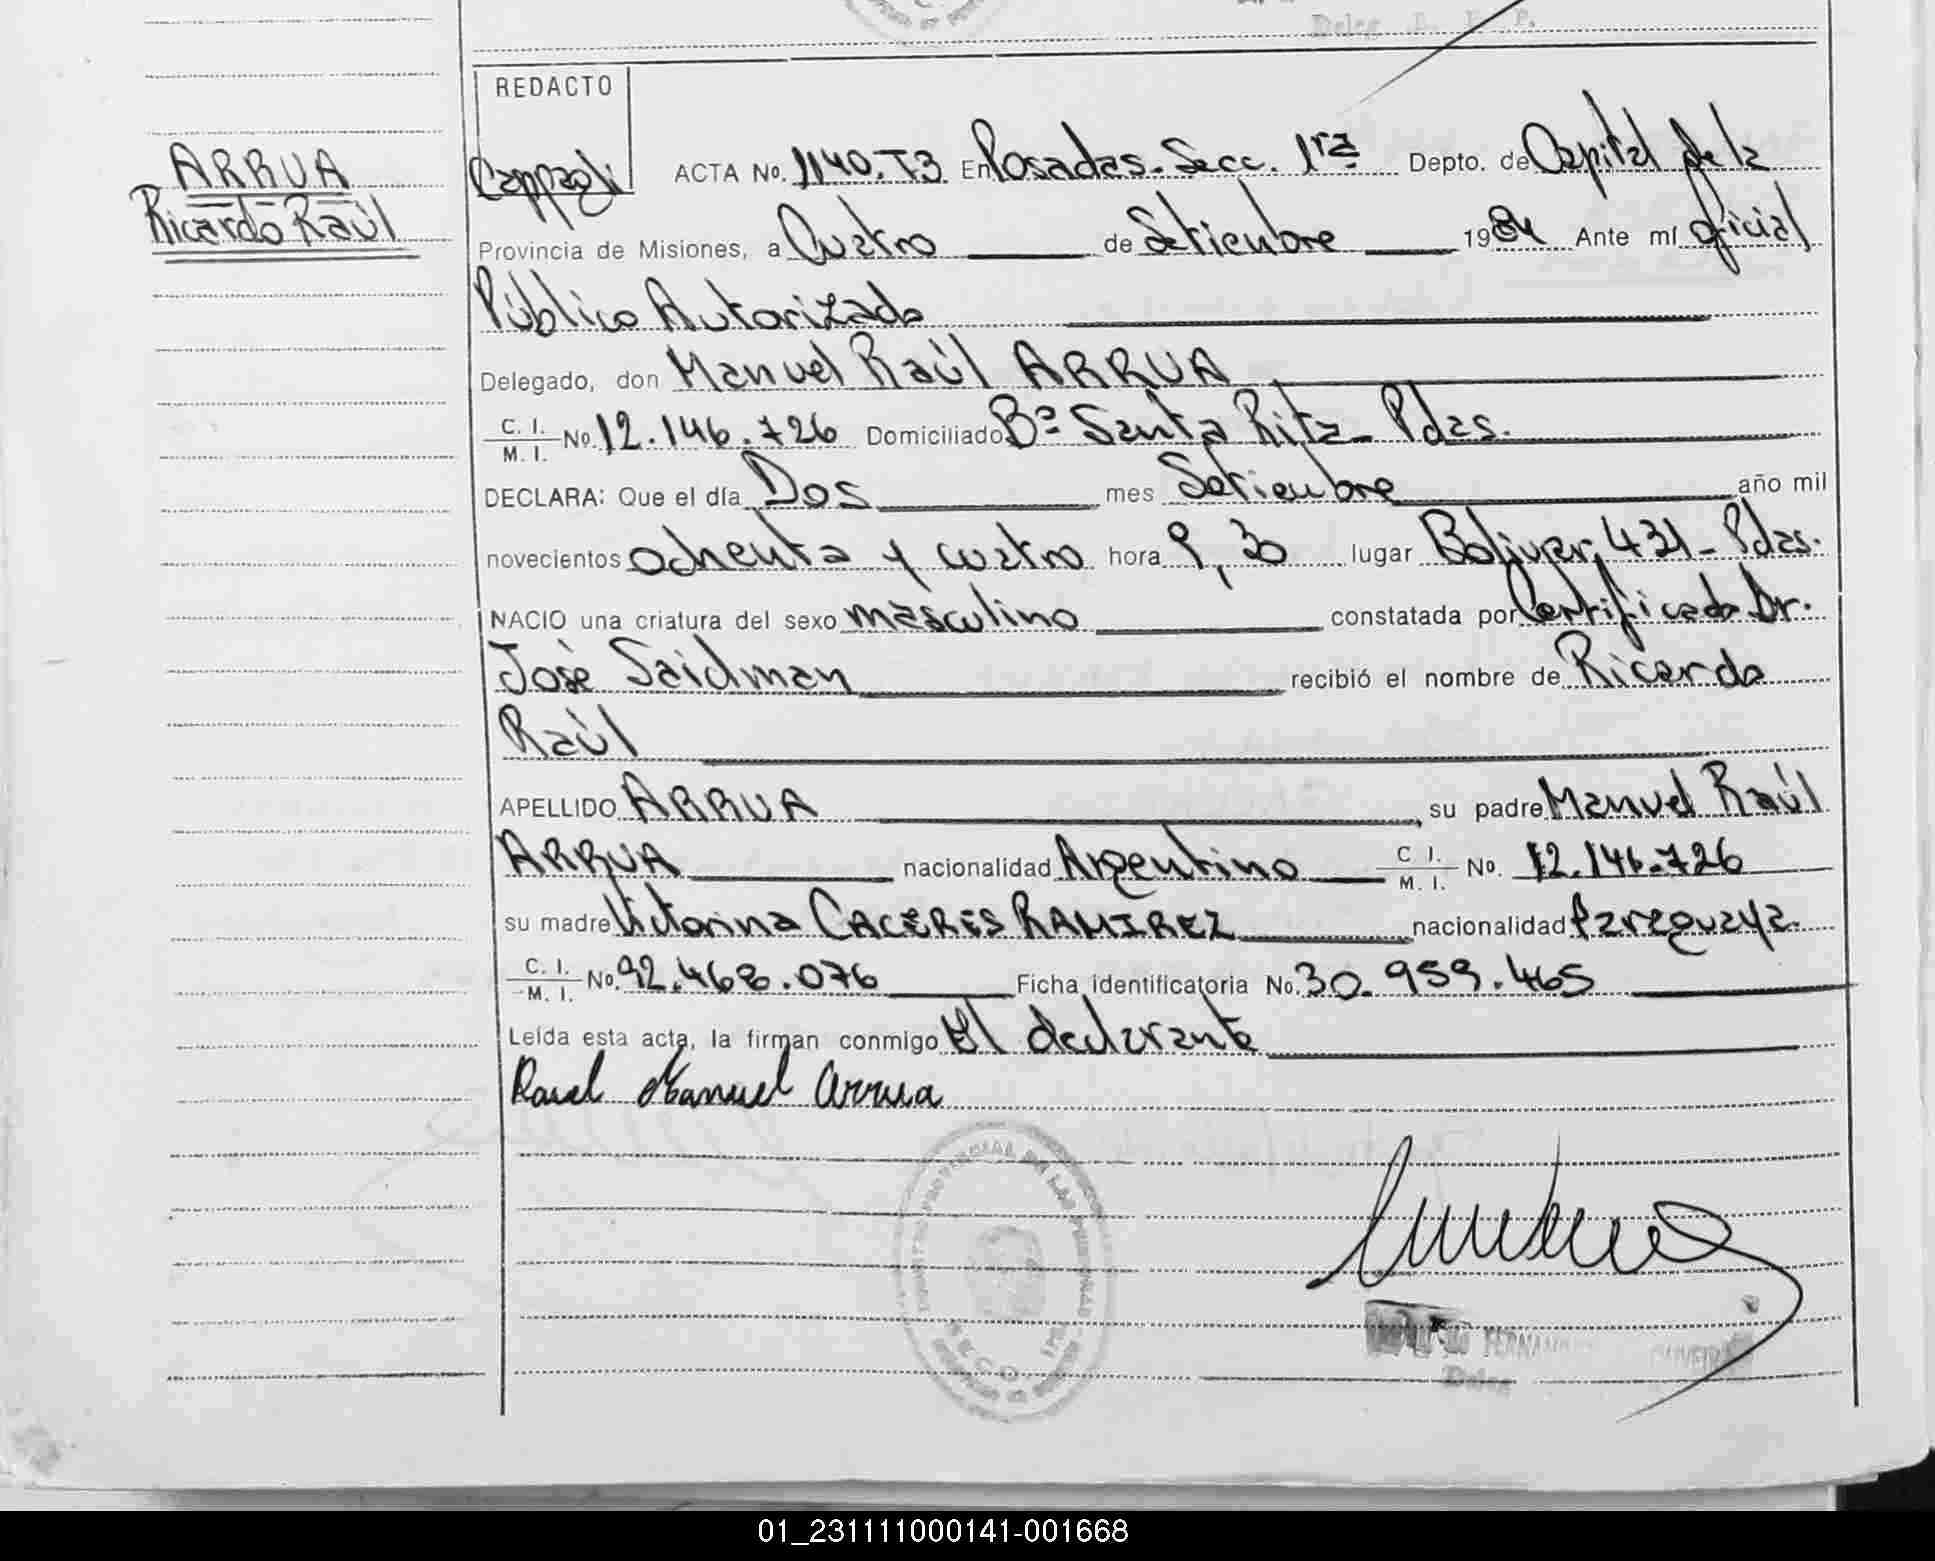 Deleg. R. P. P.
REDACTO
ARRUA
Ricardo Raúl
ACTA No. 1140.T3 En Posadas-Secc. 1ra Depto. de Capital de la
Provincia de Misiones, a Cuatro de Setiembre 1984 Ante mí oficial
Público Autorizado
Delegado, don Manuel Raúl ARRUA
C. I. M. I. No. 12.146.726 Domiciliado Bº Santa Rita- Pdas.
DECLARA: Que el día Dos mes Setiembre año mil
novecientos ochenta y cuatro hora 9,30 lugar Bolivar, 431- Pdas.
NACIO una criatura del sexo masculino constatada por Certificado Dr.
José Saidman recibió el nombre de Ricardo
Raúl
APELLIDO ARRUA su padre Manuel Raúl
ARRUA nacionalidad Argentino C I. M. I. No. 12.146.726
su madre Victorina CACERES RAMIREZ nacionalidad Paraguaya.
C. I. M. I. No. 92.468.076 Ficha identificatoria No. 30.959.465
Leída esta acta, la firman conmigo El declarante
Raul Manuel Arrua
01_231111000141-001668